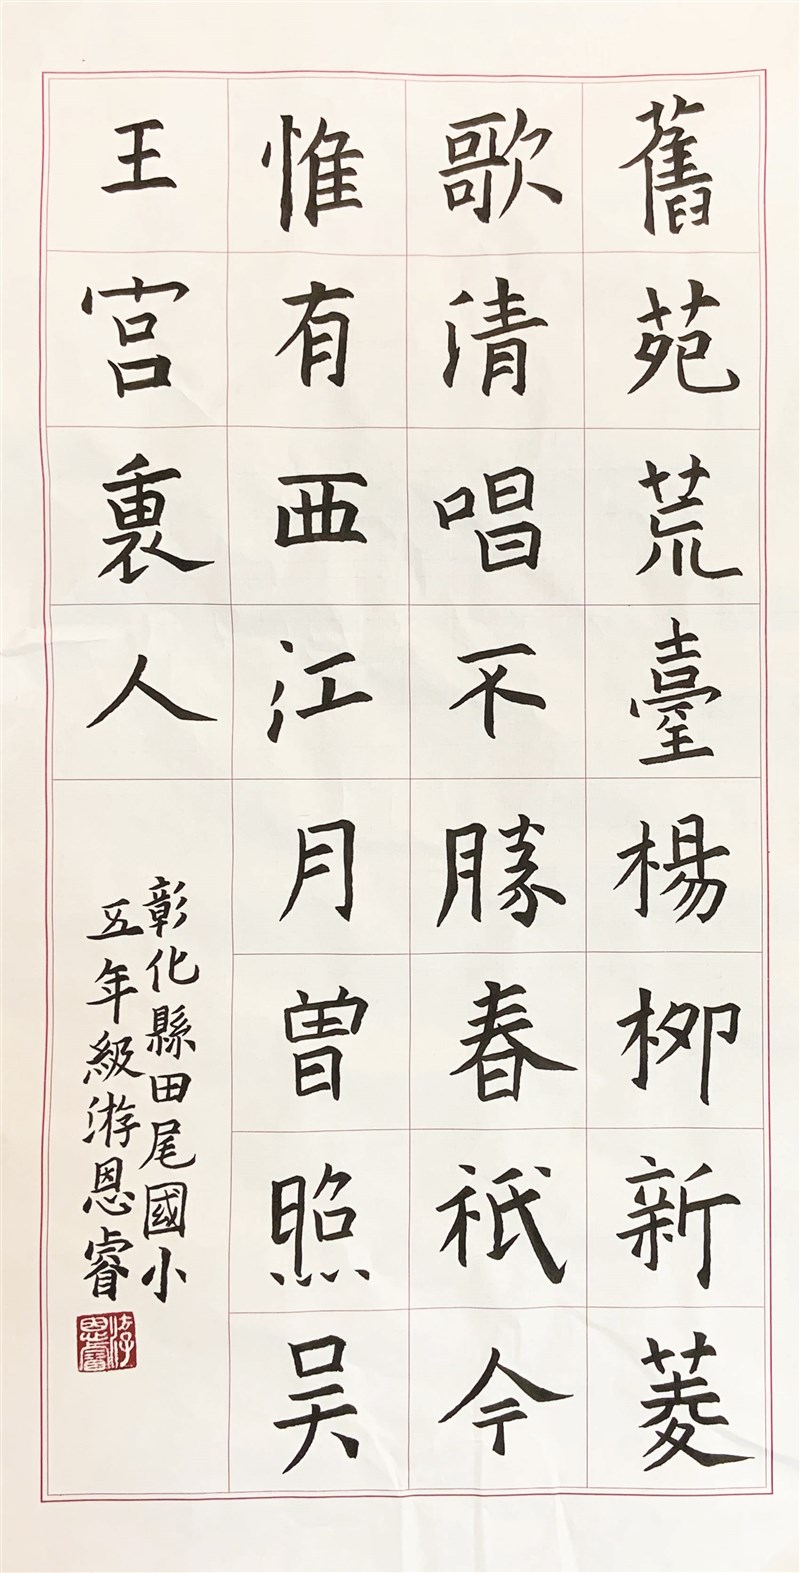 舊苑荒臺楊柳新菱
歌清唱不勝春祇今
惟有西江月曾照吳
王宮裏人
彰化縣田尾國小
五年級游恩睿
游恩睿